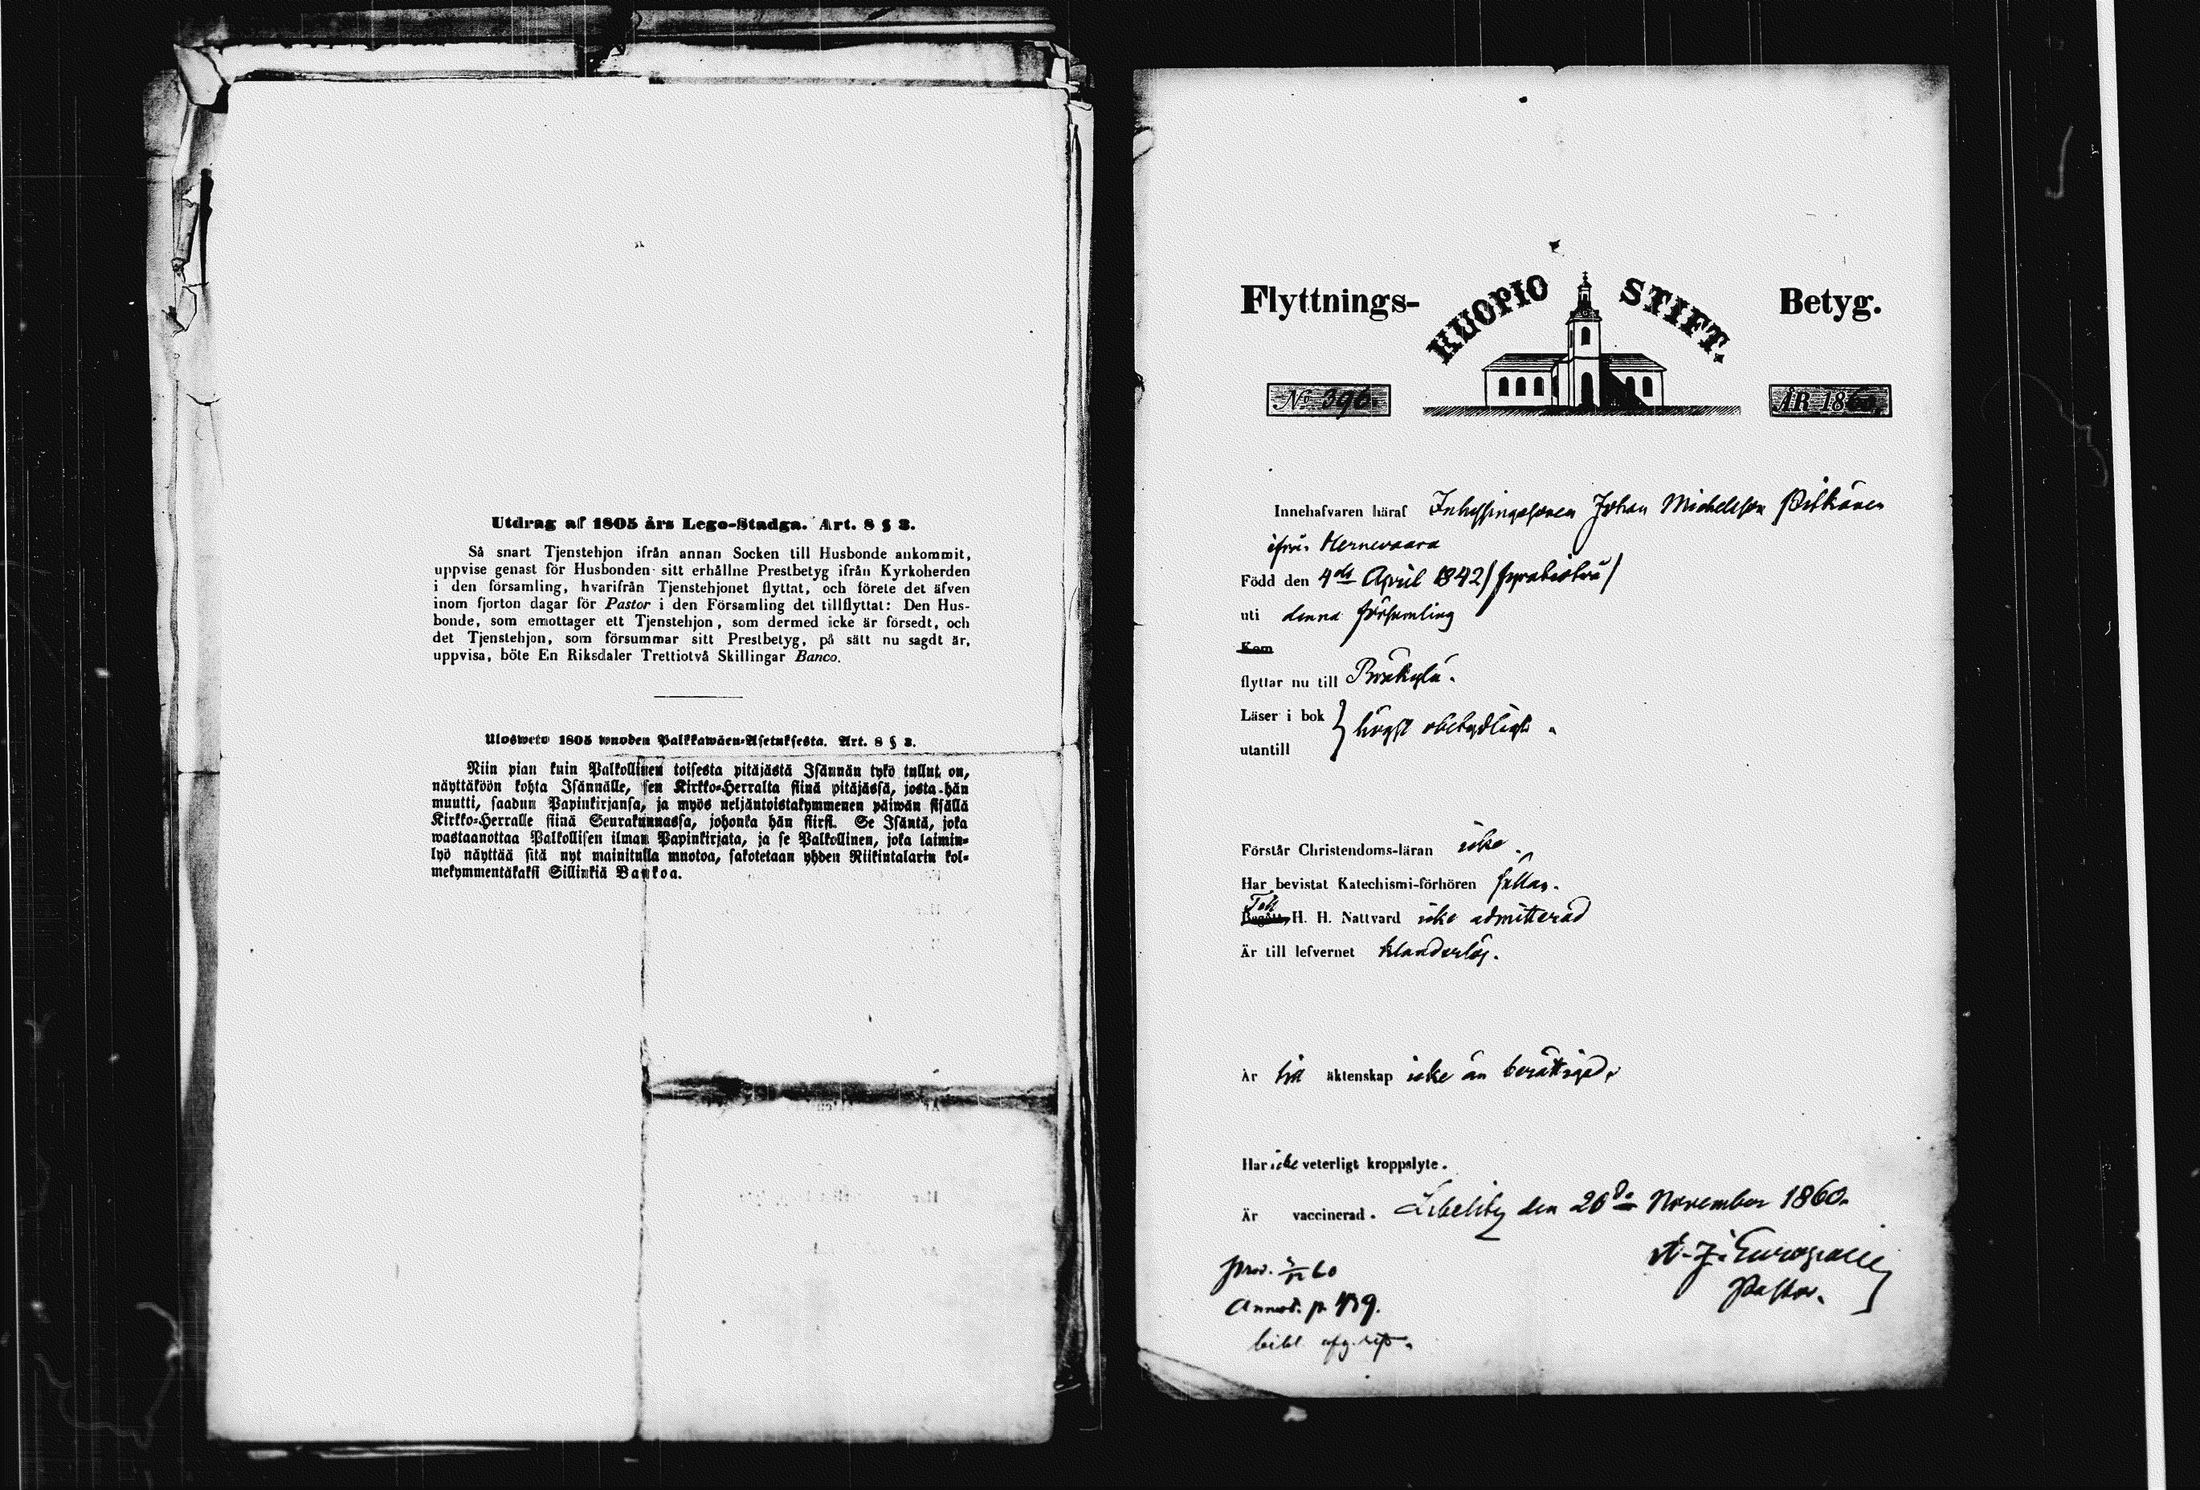 Utdrag af 1805 års Lego-Stadga. Art. 8 § 3.
Så snart Tjenstehjon ifrån annan Socken till Husbonde ankommit,
uppvise genast för Husbonden sitt erhållne Prestbetyg ifrån Kyrkoherden
i den församling, hvarifrån Tjenstehjonet flyttat, och förete det äfven
inom fjorton dagar för Pastor i den Församling det tillflyttat: Den Hus-
bonde, som emottager ett Tjenstehjon, som dermed icke är försedt, och
det Tjenstehjon, som försummar sitt Prestbetyg, på sätt nu sagdt är,
uppvisa, böte En Riksdaler Trettiotvå Skillingar Banco.
Ulosweto 1805 wuoden Palkkawäen-Asetuksesta. Art. 8 § 3.
Niin pian kuin Palkollinen toisesta pitäjästä Isännän tykö tullut on,
näyttäköön kohta Isännälle, sen Kirkko-Herralta siinä pitäjässä, josta hän
muutti, saadun Papinkirjansa, ja myös neljäntoistakymmenen päiwän sisällä
Kirkko-Herralle siinä Seurakunnassa, johonka hän siirsi. Se Isäntä, joka
wastaanottaa Palkollisen ilman Papinkirjata, ja se Palkollinen, joka laimin-
lyö näyttää sitä nyt mainitulla muotoa, sakotetaan yhden Riikintalarin kol-
mekymmentäkaksi Sillinkiä Bankoa.
Flyttnings- KUOPIO STIFT. Betyg.
No 396. ÅR 1860.
Innehafvaren häraf Inhysingesonen Johan Michelsson Pitkänen
ifrån Hernevaara
Född den 4de April 1842
uti denna församling
Kom
flyttar nu till Bräkylä.
Läser i bok } högst obetydligt.
utantill
Förstår Christendoms-läran icke.
Har bevistat Katechismi-förhören sällan.
Till
Begått H. H. Nattvard icke admitterad
Är till lefvernet klanderlös.
Är till äktenskap icke än berättigad.
Har icke veterligt kroppslyte.
Är vaccinerad. Libelitz den 26de November 1860.
A. J. Europaeus
Pastor.
Annot. p. 439.